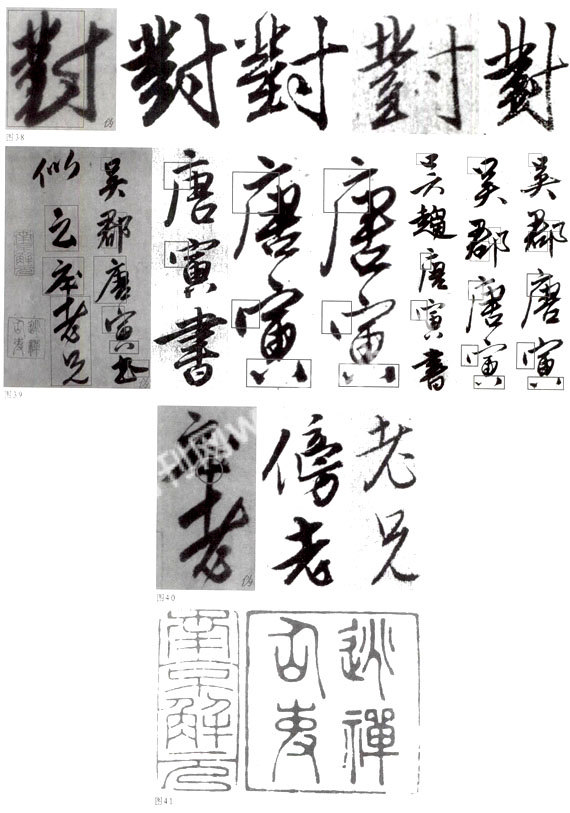 對 對 對 對 對
图38
吴郡唐寅书
似立宋老兄
唐寅書
唐寅
唐寅
吴趨唐寅書
吴郡唐寅
吴郡唐寅
图39
老
傍老
老兄
图40
南京解元
逃禪仙吏
图41